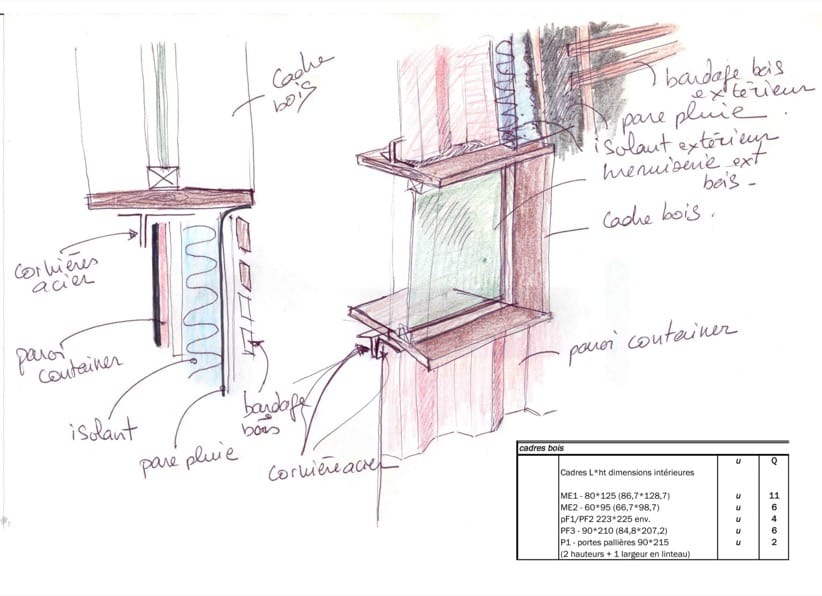 Cadre
bois
cornières
acier
paroi
container
isolant
pare pluie
bardage
bois
cornière acier
bardage bois
extérieur
pare pluie.
isolant extérieur
menuiserie ext
bois -
Cadre bois.
paroi container
cadres bois
u Q
Cadres L*ht dimensions intérieures
ME1 - 80*125 (86,7*128,7) u 11
ME2 - 60*95 (66,7*98,7) u 6
pF1/PF2 223*225 env. u 4
PF3 - 90*210 (84,8*207,2) u 6
P1 - portes pallières 90*215 u 2
(2 hauteurs + 1 largeur en linteau)